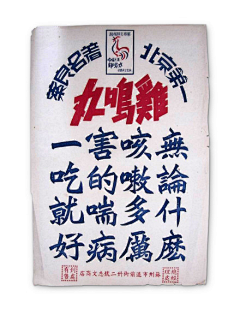 北京第一
著名良藥
雞鳴丸
無論什麼
咳嗽多厲
害的喘病
一吃就好
到處有售